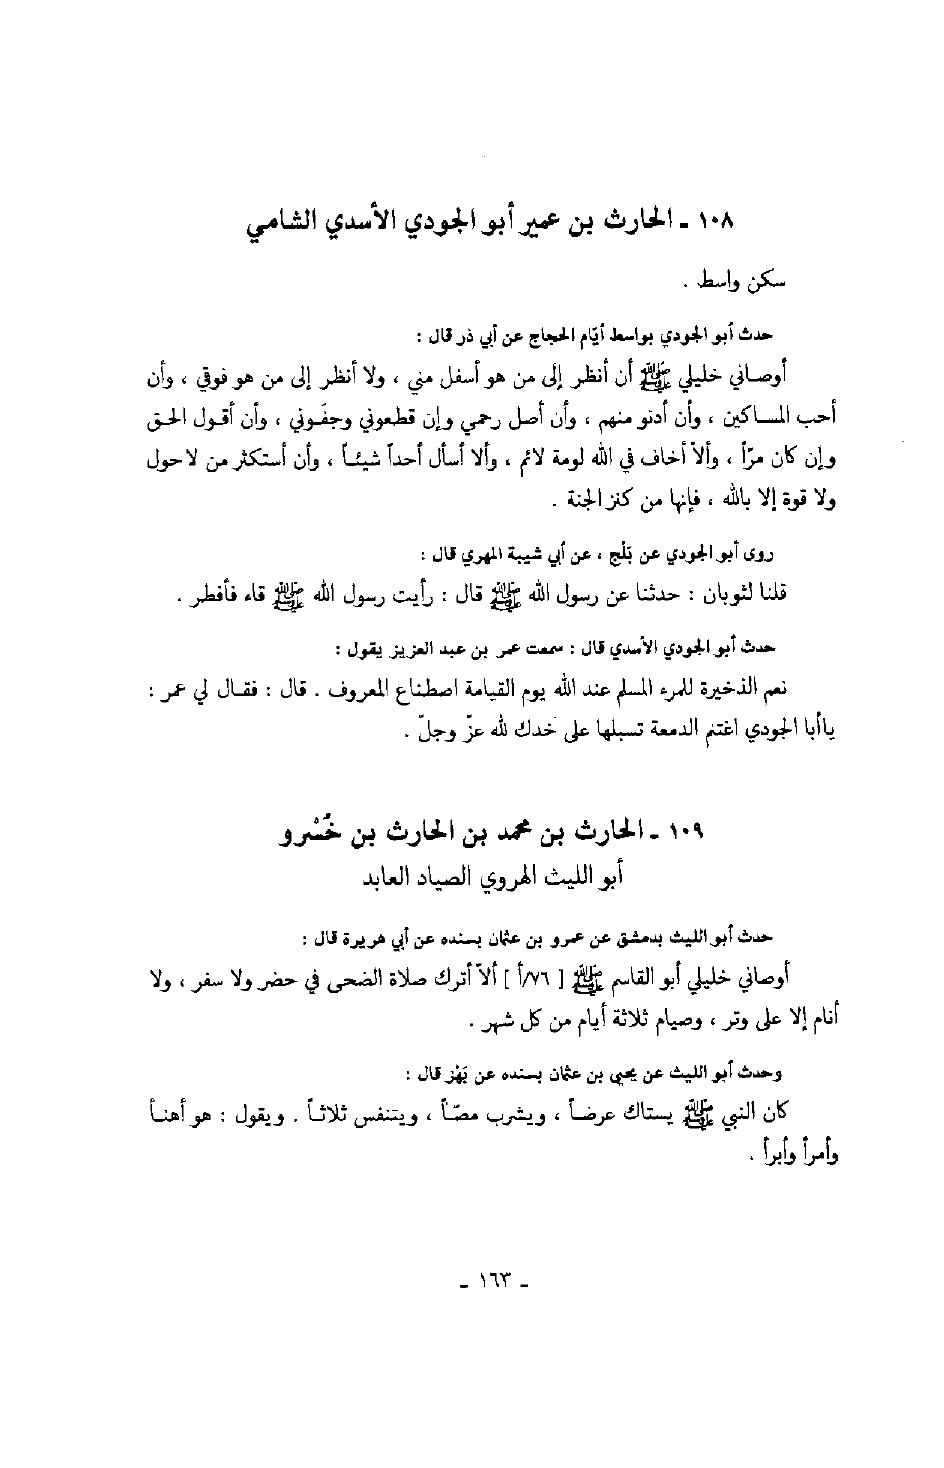 ١٠٨ ـ الحارث بن عمير أبو الجودي الأسدي الشامي
سكن واسط .
حدث أبو الجودي بواسط أيّام الحجاج عن أبي ذر قال :
أوصاني خليلي ﷺ أن أنظر إلى من هو أسفل مني ، ولا أنظر إلى من هو فوقي ، وأن
أحب المساكين ، وأن أدنو منهم ، وأن أصل رحمي وإن قطعوني وجفَوني ، وأن أقول الحق
وإن كان مرّاً ، وألاّ أخاف في الله لومة لائم ، وألا أسأل أحداً شيئاً ، وأن أستكثر من لا حول
ولا قوة إلا بالله ، فإنها من كنز الجنة .
روى أبو الجودي عن بَلْج ، عن أبي شيبة المهري قال :
قلنا لثوبان : حدثنا عن رسول الله ﷺ قال : رأيت رسول الله ﷺ قاء فأفطر .
حدث أبو الجودي الأسدي قال : سمعت عمر بن عبد العزيز يقول :
نعم الذخيرة للمرء المسلم عند الله يوم القيامة اصطناع المعروف . قال : فقال لي عمر :
ياأبا الجودي اغتنم الدمعة تسبلها على خدك لله عزّ وجلّ .
١٠٩ ـ الحارث بن محمد بن الحارث بن خُسْرو
أبو الليث الهروي الصياد العابد
حدث أبو الليث بدمشق عن عمرو بن عثمان بسنده عن أبي هريرة قال :
أوصاني خليلي أبو القاسم ﷺ [ ٧٦/أ ] ألاّ أترك صلاة الضحى في حضر ولا سفر ، ولا
أنام إلا على وتر ، وصيام ثلاثة أيام من كل شهر .
وحدث أبو الليث عن يحيى بن عثمان بسنده عن بَهْز قال :
كان النبي ﷺ يستاك عرضاً ، ويشرب مصّاً ، ويتنفس ثلاثاً . ويقول : هو أهنأ
وأمرأ وأبرأ .
ـ ١٦٣ ـ